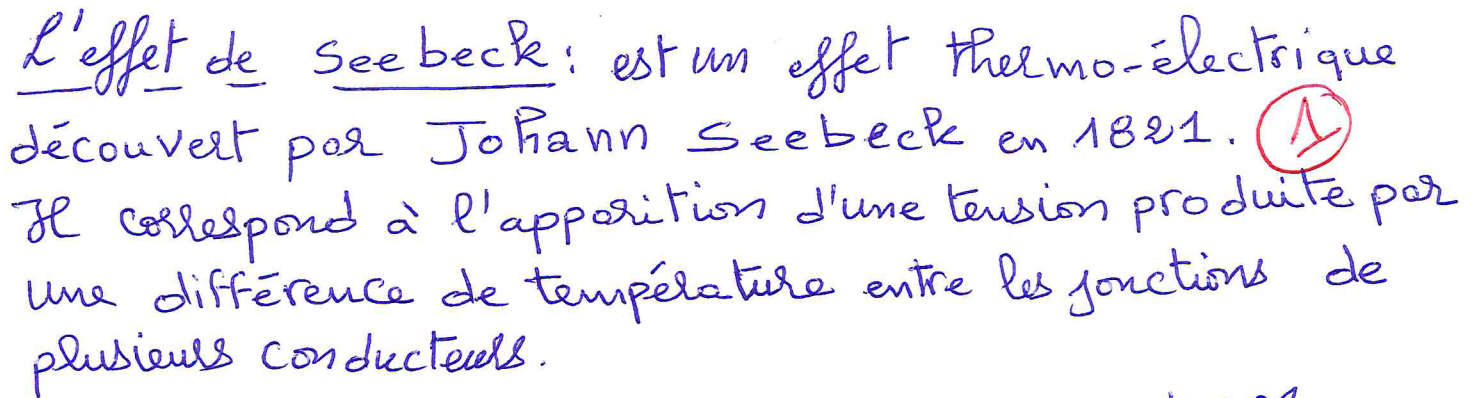 L'effet de Seebeck : est un effet thermo-électrique
découvert par Johann Seebeck en 1821. 1
Il correspond à l'apparition d'une tension produite par
une différence de température entre les jonctions de
plusieurs conducteurs.